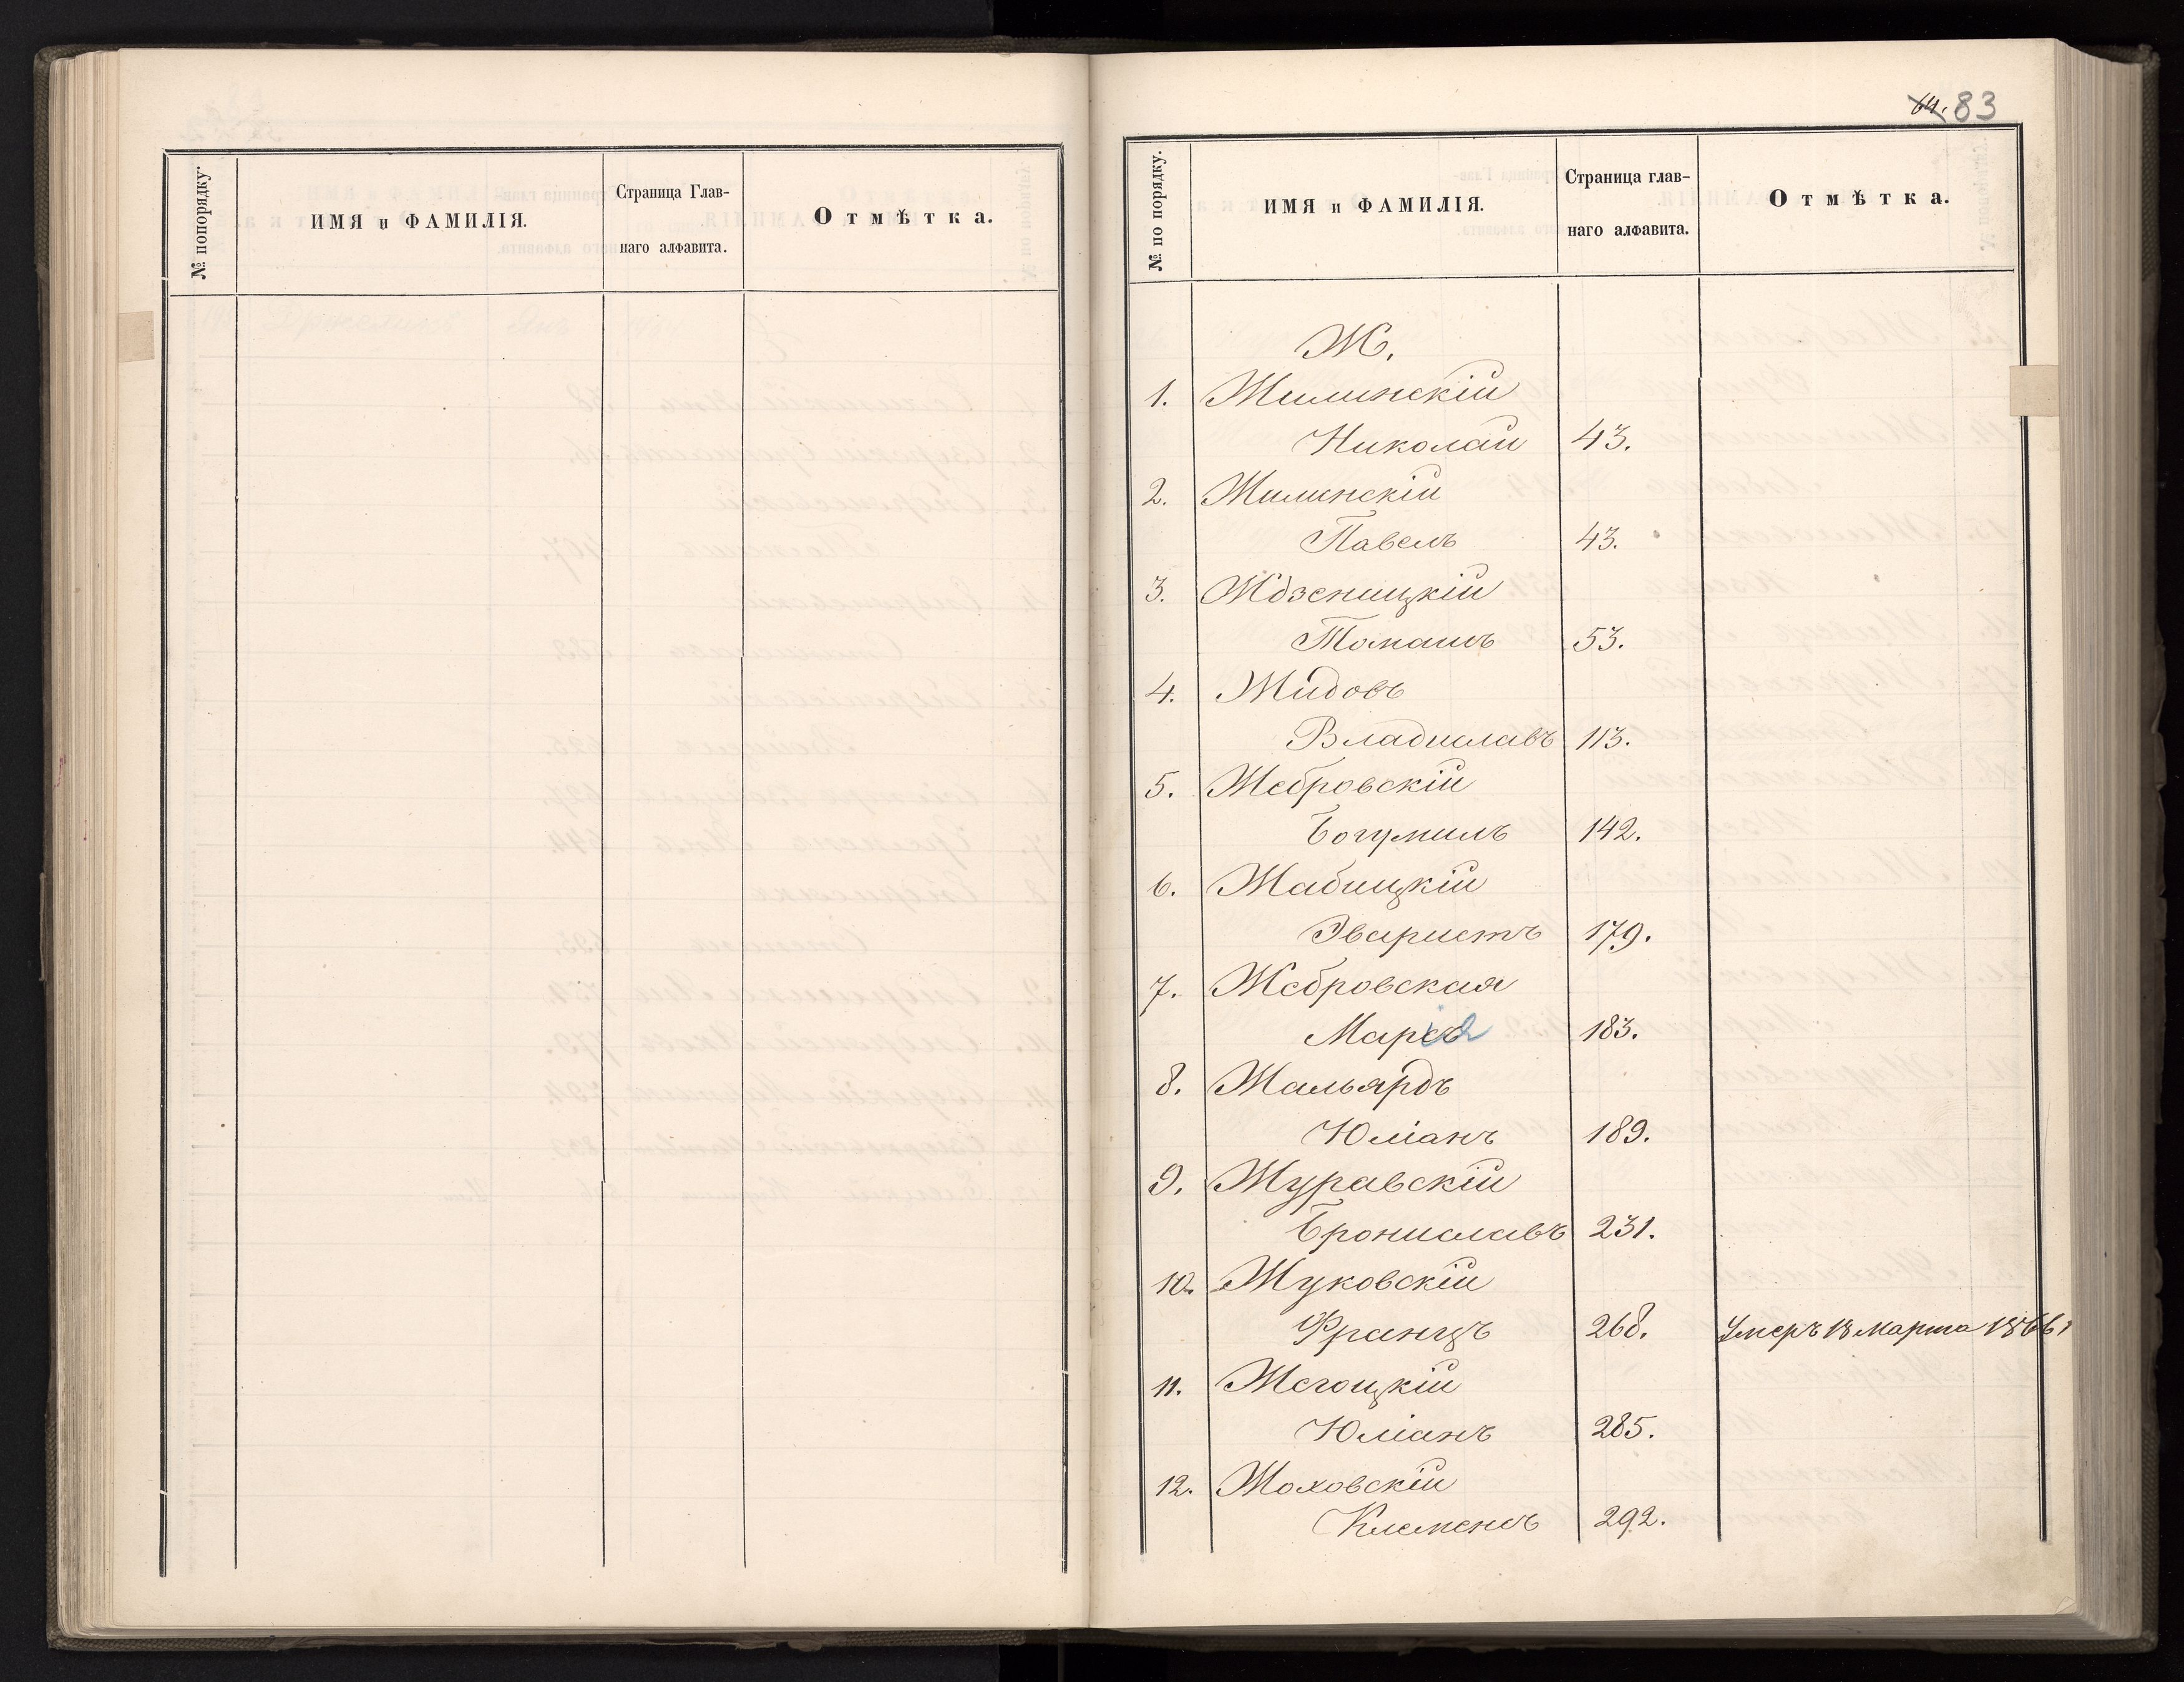 № попорядку.
ИМЯ и ФАМИЛІЯ.
Страница Глав-
наго алфавита.
Отмѣтка.
64. 83
№ по порядку.
ИМЯ и ФАМИЛІЯ.
Страница глав-
наго алфавита.
Отмѣтка.
Ж.
1. Жилинскій
Николай 43.
2. Жилинскій
Павелъ 43.
3. Ждзеницкій
Томашъ 53.
4. Жидовъ
Владиславъ 113.
5. Жебровскій
Богумилъ 142.
6. Жабицкій
Эваристъ 179.
7. Жебровская
Марія 183.
8. Жальярдъ
Юліанъ 189.
9. Журавскій
Брониславъ 231.
10. Жуковскій
Францъ 268. Умеръ 18 Марта 1866 г
11. Жегоцкій
Юліанъ 285.
12. Жоховскій
Клеменсъ 292.